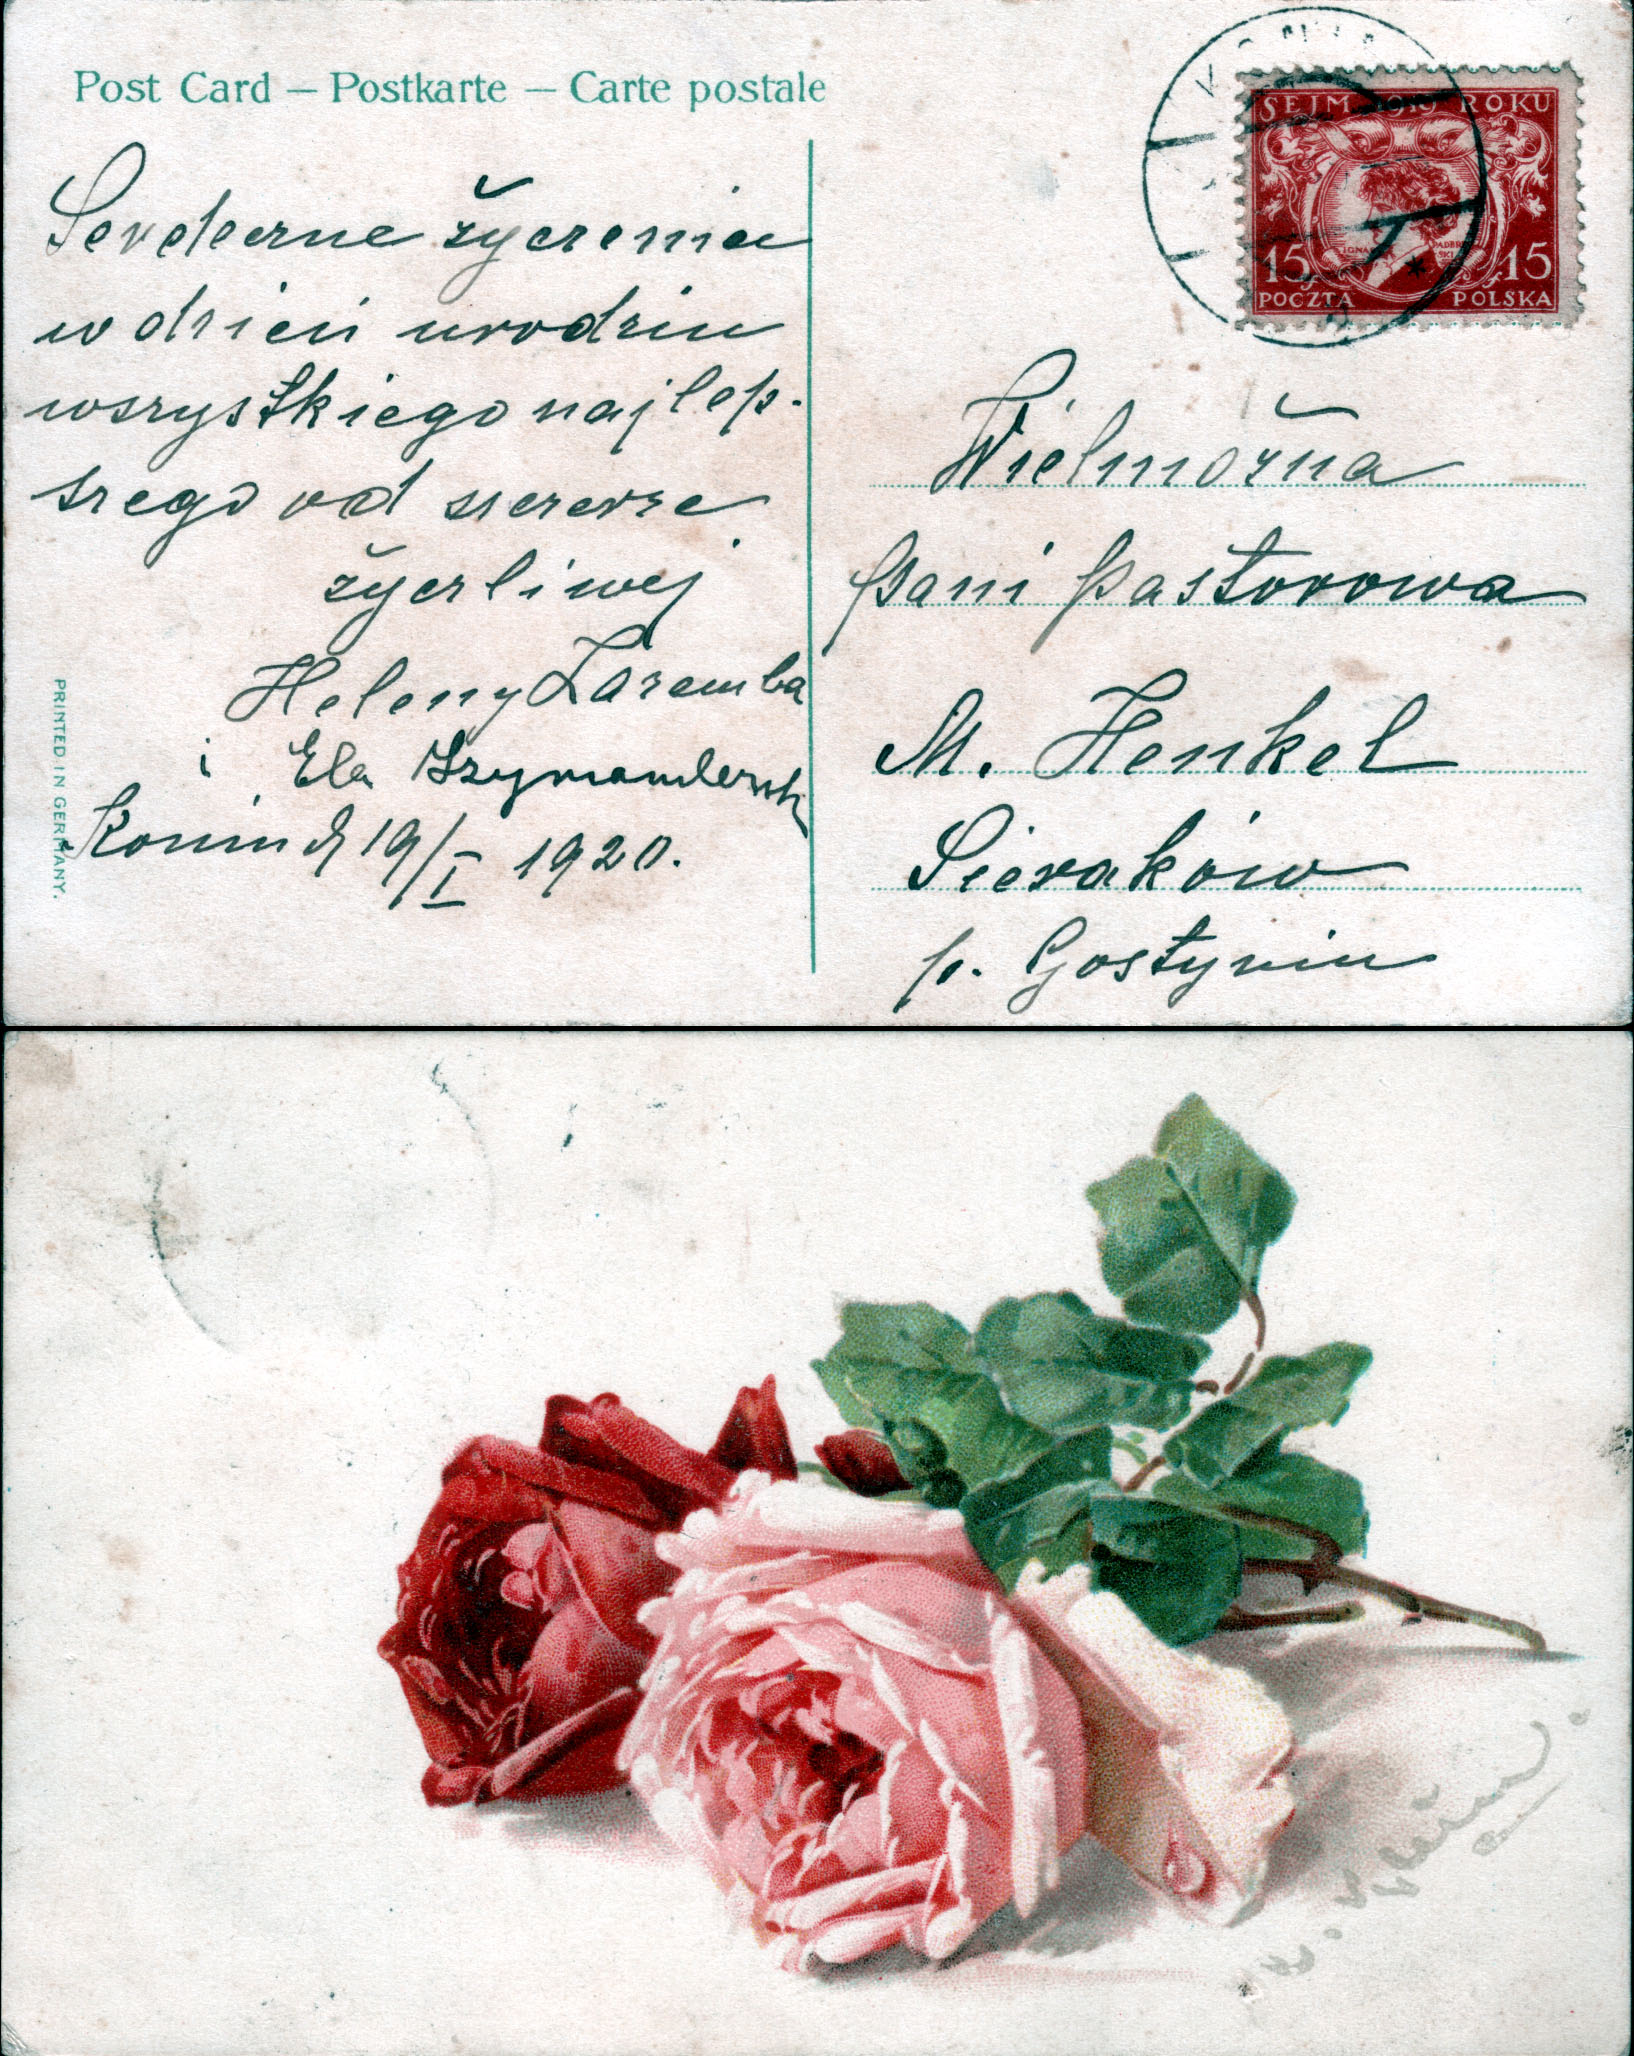 Post Card – Postkarte – Carte postale
Serdeczne życzenia
w dzień urodzin
wszystkiego najlep-
szego od szczerze
życzliwej
Heleny Zaremba
i Ela
Konin d 19/I 1920.
PRINTED IN GERMANY.
SEJM 1919 ROKU
15 15
POCZTA POLSKA
Wielmożna
Pani Pastorowa
M. Henkel
Sieraków
p. Gostynin
C. Klein.